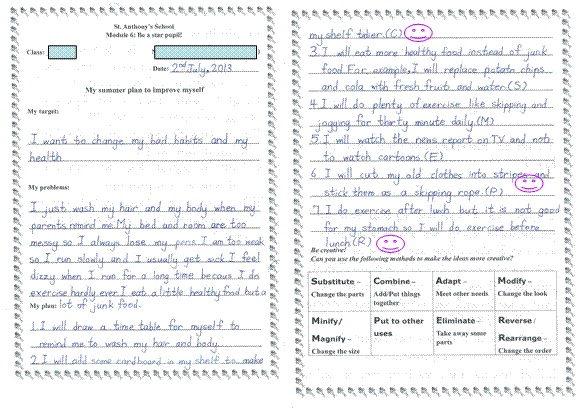 St. Anthony's School
Module 6: Be a star pupil!
Class:
Date: 2nd July, 2013
My summer plan to improve myself
My target:
I want to change my bad habits and my
health
My problems:
I just wash my hair and my body when my
parents remind me. My bed and room are too
messy so I always lose my pens. I am too weak
so I run slowly and I usually get sick. I feel
dizzy when I run for a long time becaus I do
exercise hardly ever. I eat a little healthy food but a
My plan: lot of junk food.
1. I will draw a time table for myself to
remind me to wash my hair and body.
2. I will add some cardboard in my shelf to make
my shelf taber. (C)
3. I will eat more healthy food instead of junk
food. For example, I will replace potato chips
and cola with fresh fruit and water. (S)
4. I will do plenty of exercise like skipping and
jogging for thirty minute daily. (M)
5. I will watch the news report on TV and not
to watch cartoons. (E)
6. I will cut my old clothes into stripes and
stick them as a skipping rope. (P)
7. I do exercise after luch but it is not good
for my stomach so I will do exercise before
lunch (R)
Be creative!
Can you use the following methods to make the ideas more creative?
Substitute – Combine – Adapt – Modify –
Change the parts Add/Put things together Meet other needs Change the look
Minify/ Magnify – Put to other uses Eliminate – Reverse/ Rearrange –
Change the size Take away some parts Change the order